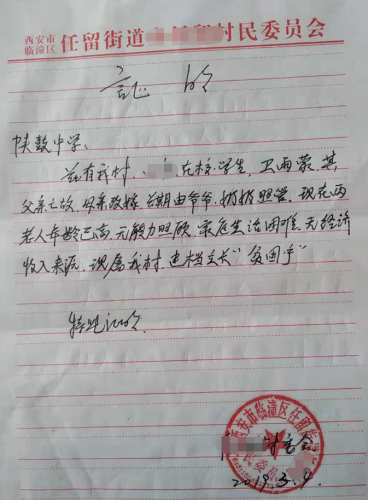 西安市
临潼区 任留街道 村民委员会
证明
陕鼓中学:
兹有我村 在校学生,卫雨蒙,其
父亲亡故,母亲改嫁,长期由爷爷,奶奶照管,现在两
老人年龄已高,无能力照顾,家庭生活困难,无经济
收入来源,现属我村,建档立卡“贫困户”
特此证明.
西安市临潼区任留街
村委会
2019.3.9